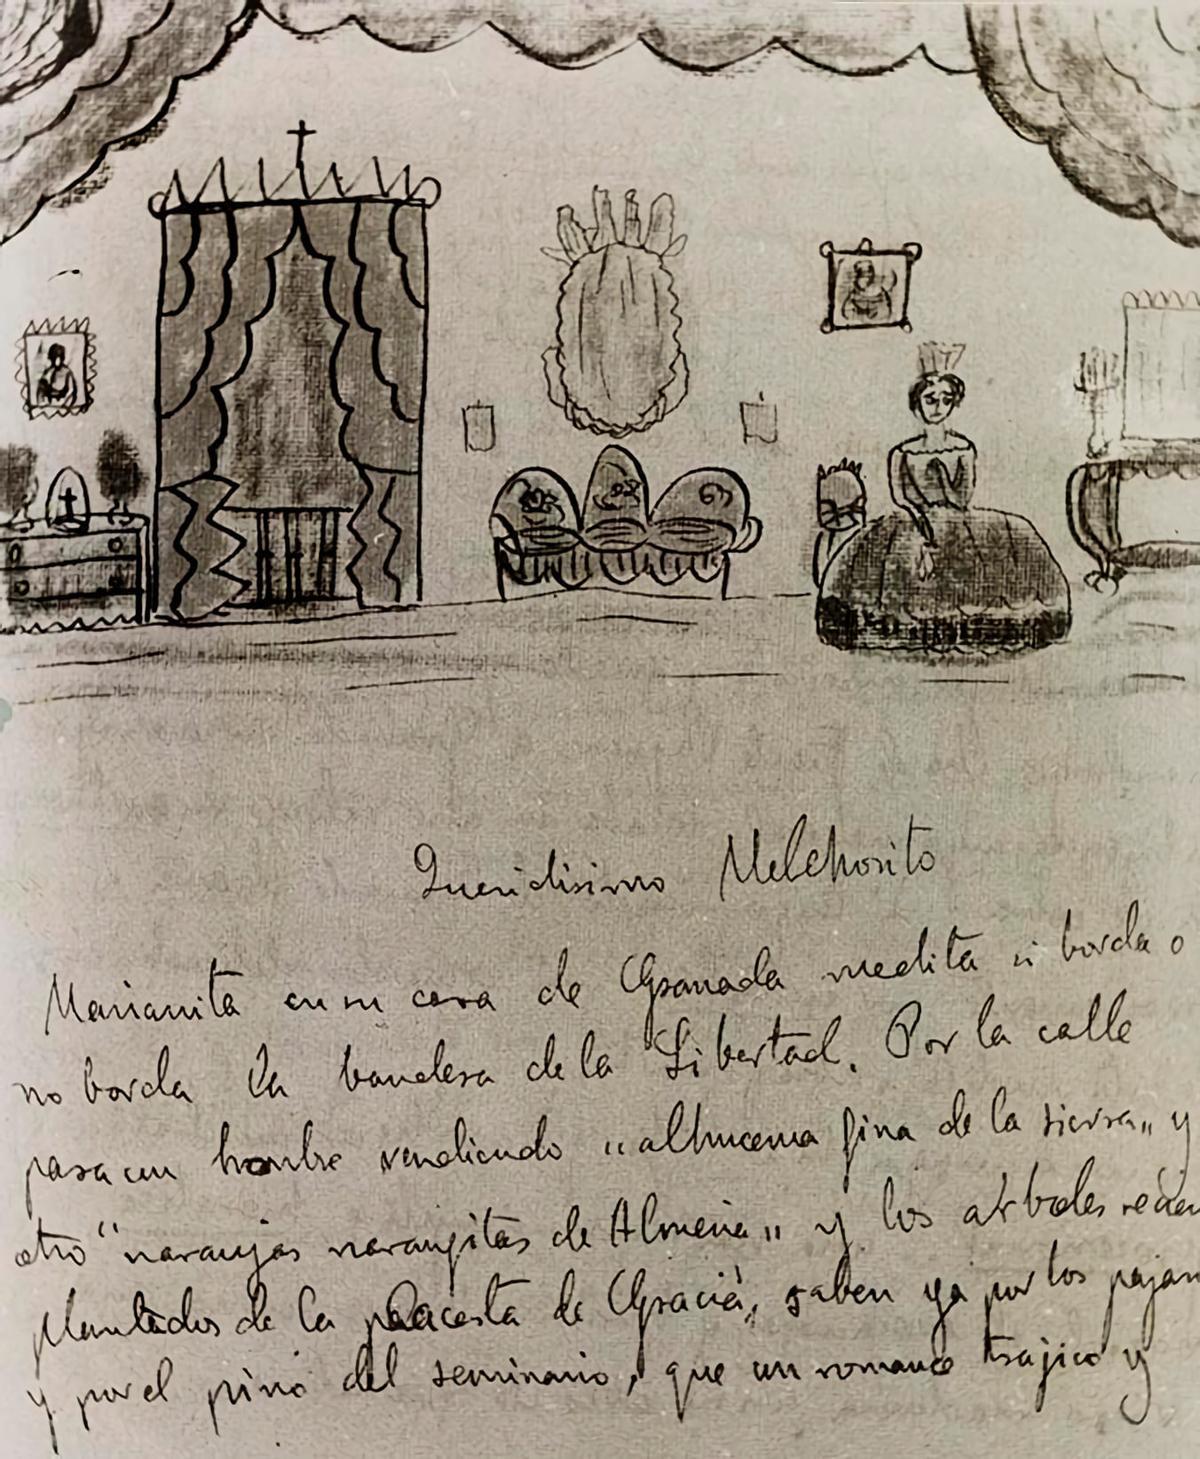 Queridisimo Melchorito
Marianita en su casa de Granada medita si borda o
no borda la bandera de la Libertad. Por la calle
pasa un hombre vendiendo "alhucema fina de la sierra" y
otro "naranjas naranjitas de Almeria" y los arboles recien
plantados de la placeta de Gracia, saben ya por los pajaros
y por el pino del seminario, que un romance trajico y